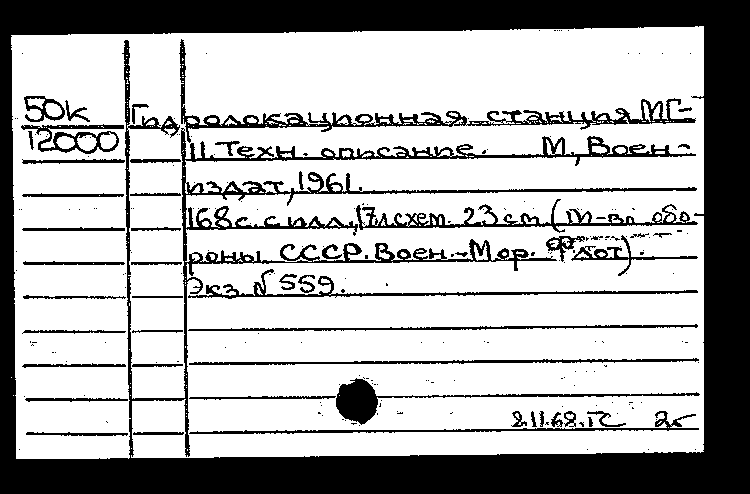 50к Гидролокационная станция МГ-
12000 11. Техн. описание. М., Воен-
издат, 1961.
168 с. с илл., 17 л. схем. 23 см (М-во обо-
роны СССР. Воен.-Мор. флот).
Экз. № 559.
2.11.62. ГС